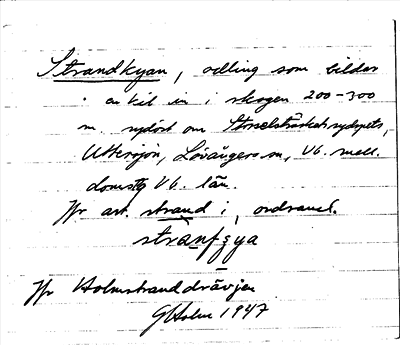 Strandkyan, odling som bildar
en kil in i skogen 200-300
m. sydost om Storselsträskets sydspets,
Uttersjön, Lövångers sn, Vb. mell.
domstg Vb. län.
Jfr art. strand i, ordsaml.
Jfr Holmstranddrävjen
G Holm 1947